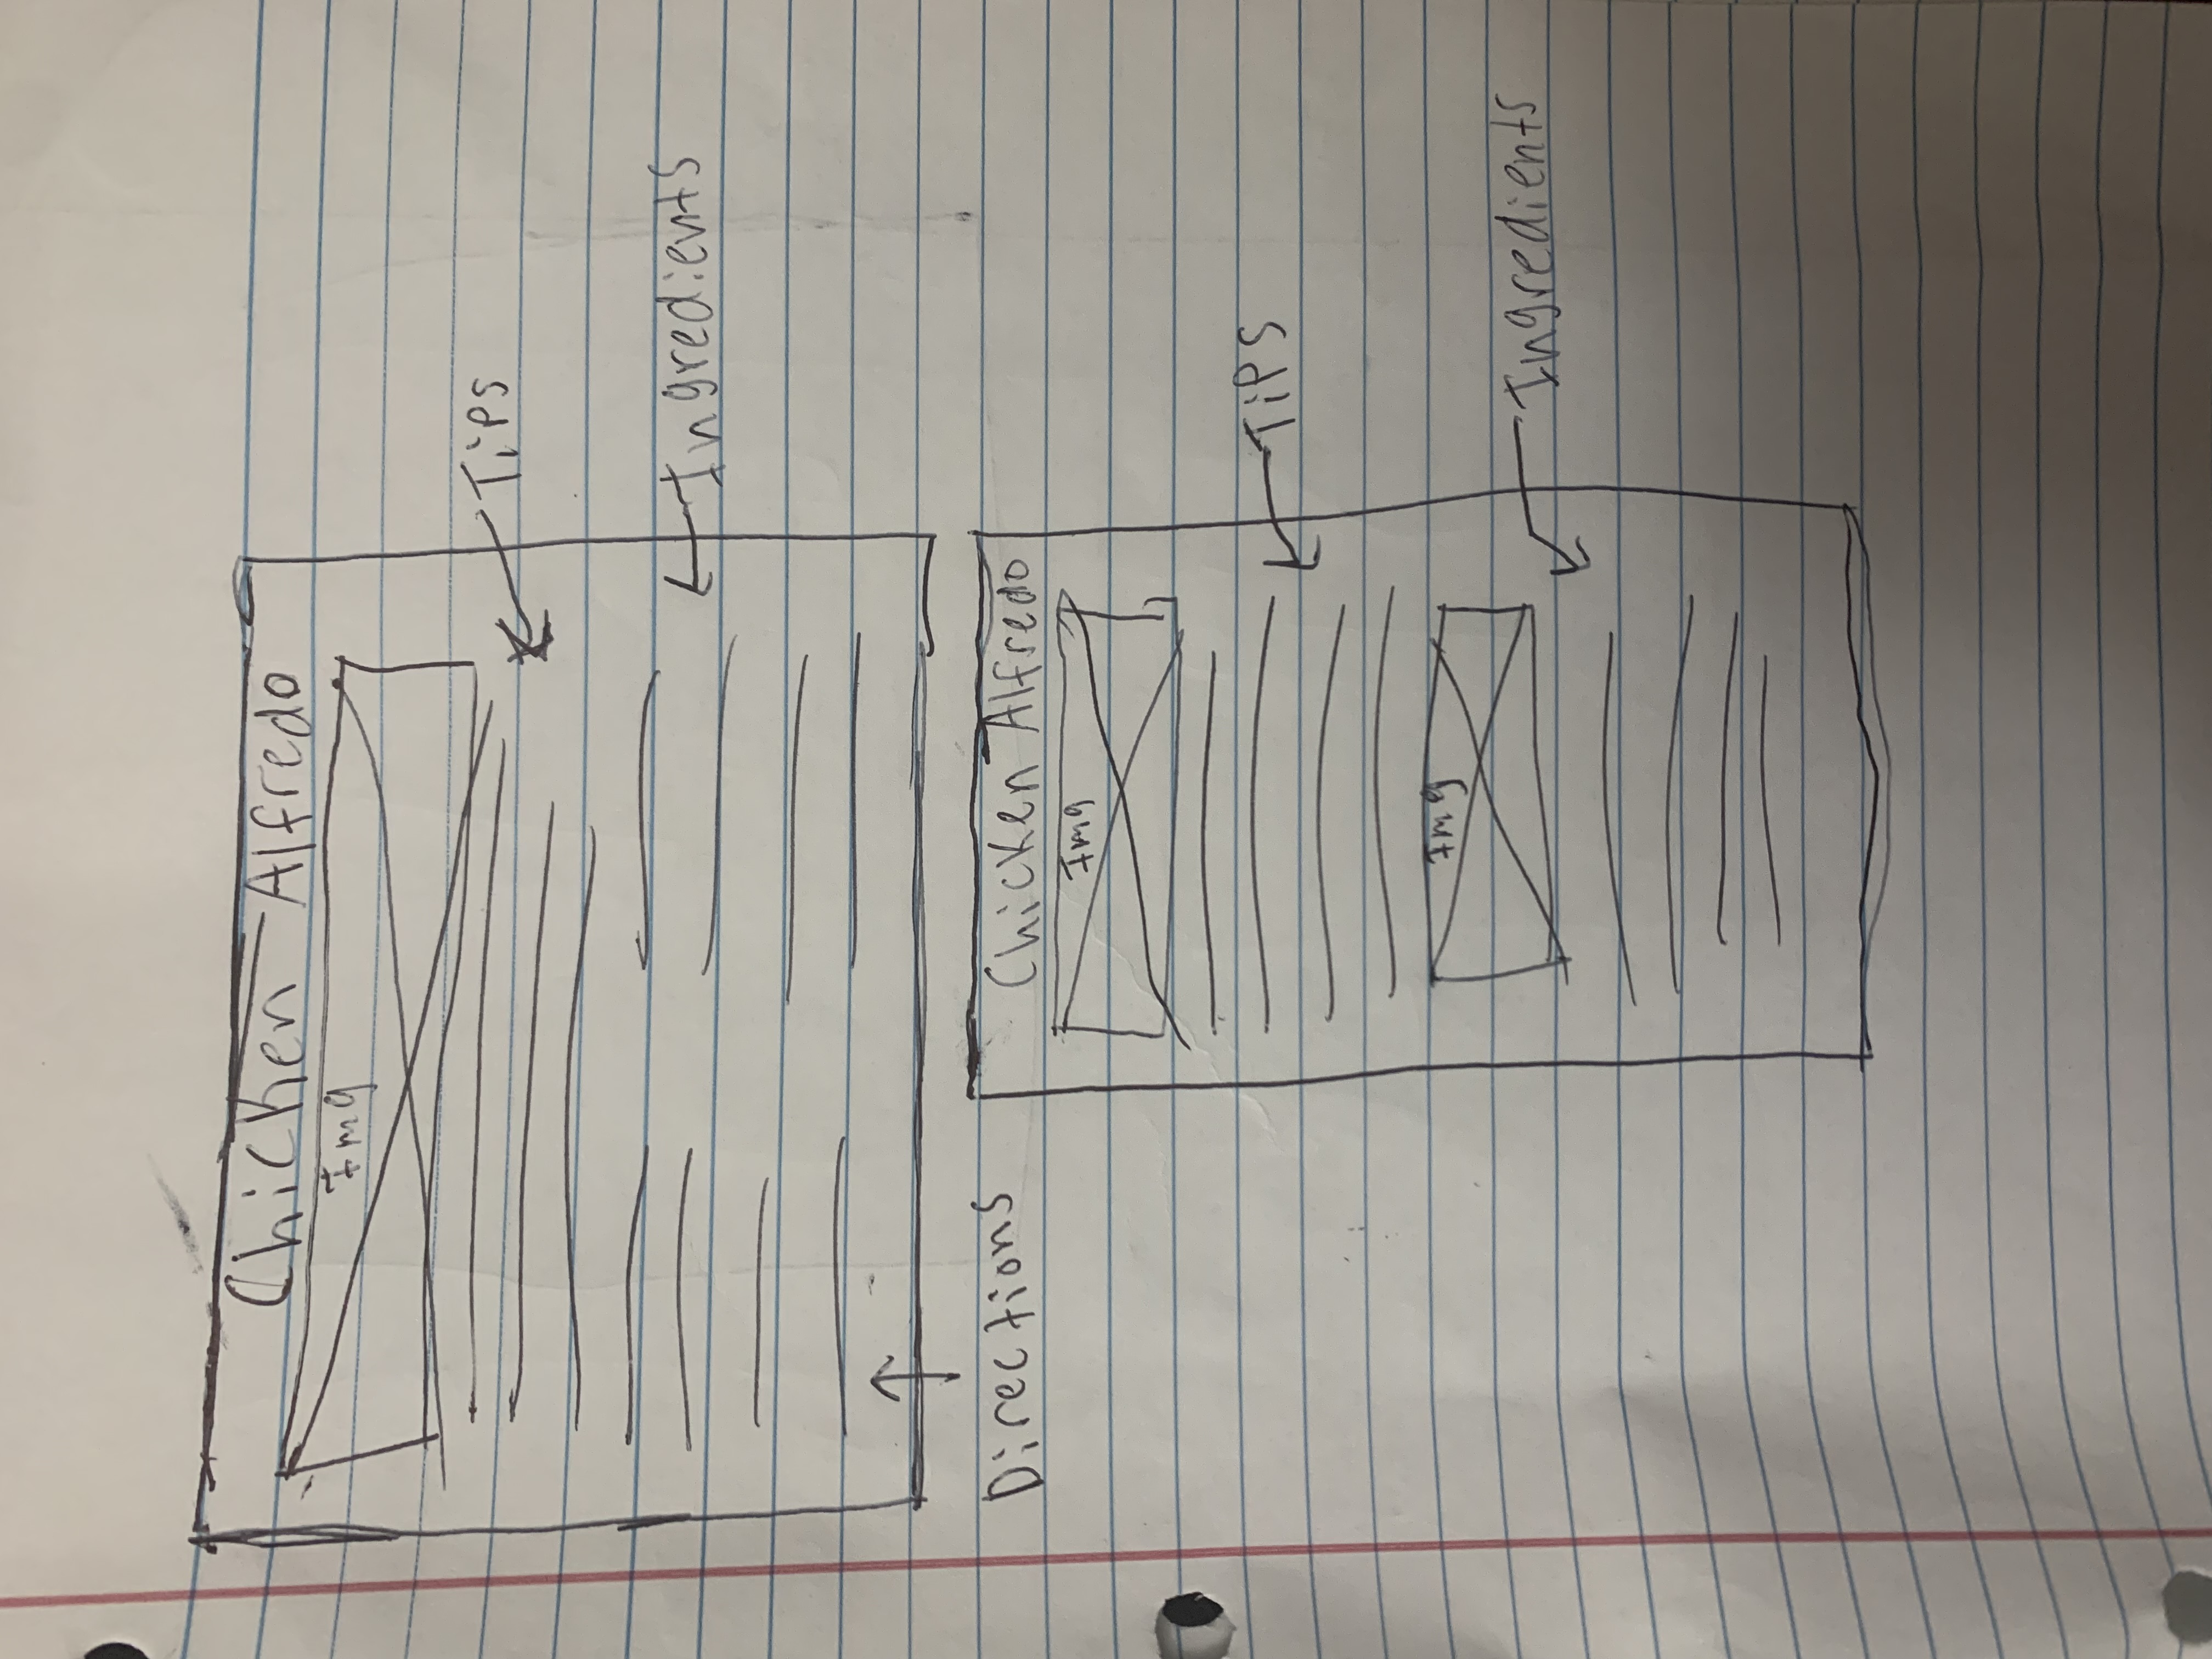 Chicken Alfredo
Img
Tips
Ingredients
Directions
Chicken Alfredo
Img
TiPS
Img
Ingredients